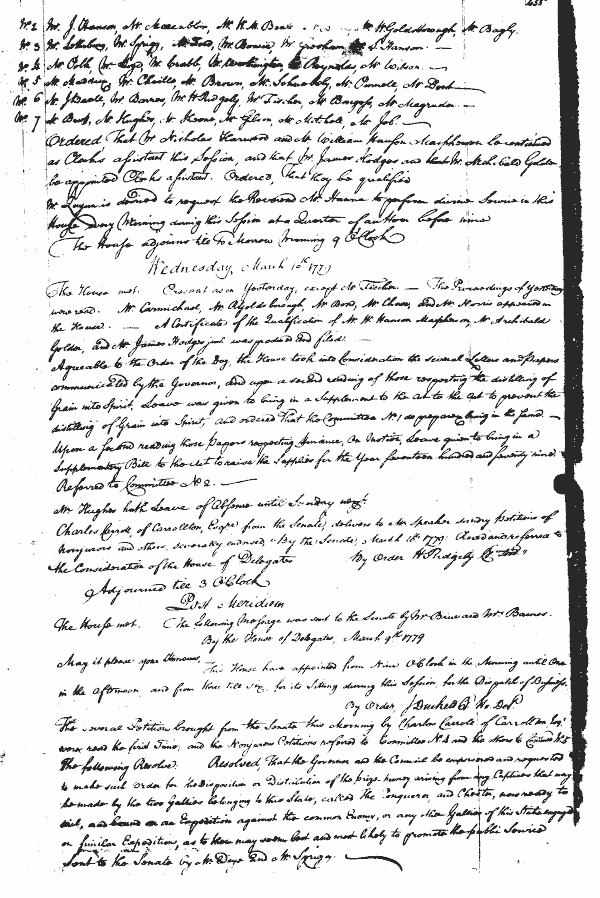 No. 2 Mr. J. Hanson, Mr Maccubbin, Mr H. M. Mr W Goldsborough, Mr Bayly.
No 3 Mr. Mr. Sprigg, Mr Bowie, Mr Gresham S. Hanson. —
No 4 Mr. Mr. Crabb, Mr Worthington, Mr Wilson. —
No. 5 Mr. Mr. Chaille, Mr. Brown, Mr. Schnebely, Mr. Purnele, Mr Dent —
No. 6 Mr. J Beale, Mr. Barnes, Mr. H Ridgely, Mr Fischer, Mr Burgess, Mr Magruder. —
No. 7 Mr Hughes, Mr Keene, Mr Gibson, Mr Mitchell, Mr Job. —
Ordered That Mr Nicholas Harwood and Mr William Hanson Macpherson be continued
as Clerks assistant this Session, and that Mr. James Hodges and that Mr. Archibald Golder
be appointed Clerks assistant. Ordered, that they be qualified
Mr is desired to request the Reverend Mr. Hanna to perform divine Service in this
House every Morning during this Session at a Quarter of an Hour before nine
The House adjourns till To Morrow Morning 9 O'Clock
Wednesday, March 10th 1779
The House met. Present as on Yesterday, except Mr Fischer. — The Proceedings of Yesterday
were read. Mr. Carmichael, Mr R Goldsborough, Mr Bond, Mr Chase, and Mr Norris appeared in
the House. — A Certificate of the Qualification of Mr W. Hanson Macpherson, Mr. Archibald
Golder, and Mr. James Hodges was produced and filed. —
Agreeable to the Order of the Day, the House took into Consideration the several Letters and Papers
communicated by the Governor, and upon a second reading of those respecting the distilling of
Grain into Spirit, Leave was given to bring in a Supplement to the Act to the Act to prevent the
distilling of Grain into Spirit, and ordered That the Committee No. 1 do prepare & bring in the same —
Upon a second reading those Papers respecting Finance, On Motion, Leave given to bring in a
Supplementary Bill to the Act to raise the Supplies for the Year seventeen hundred and seventy nine
Referred to Committee No 2. —
Mr Hughes hath Leave of Absence until Sunday next
Charles Carroll, of Carrollton, Esqr from the Senate, delivers to Mr Speaker sundry Petitions of
Nonjurors and others, severally endorsed, "By the Senate, March 10th 1779. Read and referred to
the Consideration of the House of Delegates By Order H. Ridgely Cl Sen"
Adjourned till 3 O'Clock
Post Meridiem
The House met. The following Message was sent to the Senate by Mr Brice and Mr Barnes.
By the House of Delegates, March 9th 1779
May it please your Honours,
This House have appointed from Nine O'Clock in the Morning until One
in the Afternoon, and from three till six, for its Sitting during this Session for the Dispatch of Business.
By Order J Duckett Cl. Ho. Del.
The several Petitions brought from the Senate this Morning by Charles Carroll of Carrollton, Esqr
were read the first Time, and the Nonjurors Petitions referred to Committee No 4 and the others to Committee No 5
The following Resolve. Resolved, That the Governor and the Council be empowered and requested
to make such Order for the Disposition or Distribution of the prize Money arising from any Captures that may
be made by the two Gallies belonging to this State, called The Conqueror, and Chester, now ready to
sail, and bound on an Expedition against the common Enemy, or any other Gallies of this State engaged
on similar Expeditions, as to them may seem best and most likely to promote the public Service
Sent to the Senate by Mr. Deye and Mr. Sprigg.